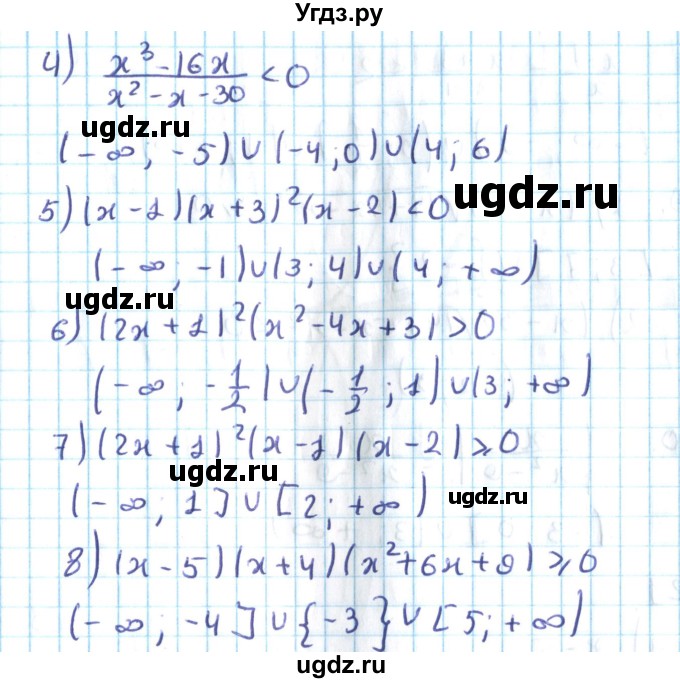 Угдз.ру
4) x³ - 16x / x² - x - 30 < 0
ugdz.ru
(-∞; -5) ∪ (-4; 0) ∪ (4; 6)
5) (x - 1)(x + 3)²(x - 2) < 0
ugdz.ru
(-∞; -1) ∪ (3; 4) ∪ (4; +∞)
ugdz.ru
6) (2x + 1)²(x² - 4x + 3) > 0
(-∞; -1/2) ∪ (-1/2; 1) ∪ (3; +∞)
7) (2x + 1)²(x - 1)(x - 2) ⩾ 0
ugdz.ru
(-∞; 1] ∪ [2; +∞)
ugdz.ru
8) (x - 5)(x + 4)(x² + 6x + 9) ⩾ 0
(-∞; -4] ∪ {-3} ∪ [5; +∞)
ugdz.ru